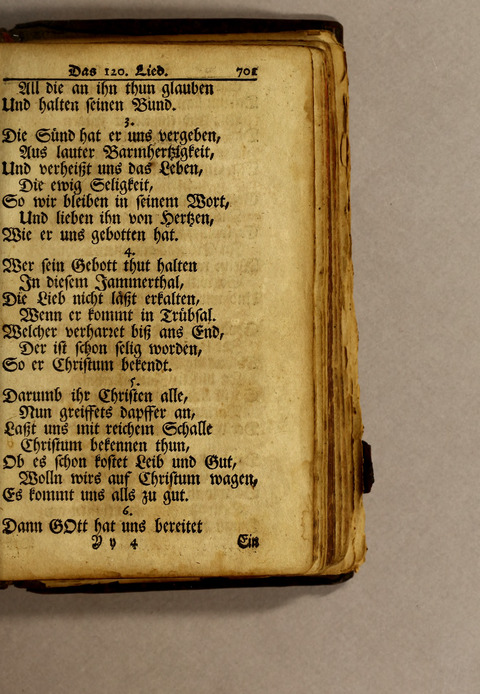 Das 120. Lied. 701
All die an ihn thun glauben
Und halten seinen Bund.
3.
Die Sünd hat er uns vergeben,
Aus lauter Barmhertzigkeit,
Und verheißt uns das Leben,
Die ewig Seligkeit,
So wir bleiben in seinem Wort,
Und lieben ihn von Hertzen,
Wie er uns gebotten hat.
4.
Wer sein Gebott thut halten
In diesem Jammerthal,
Die Lieb nicht läßt erkalten,
Wenn er kommt in Trübsal.
Welcher verharret biß ans End,
Der ist schon selig worden,
So er Christum bekendt.
5.
Darumb ihr Christen alle,
Nun greiffets dapffer an,
Laßt uns mit reichem Schalle
Christum bekennen thun,
Ob es schon kostet Leib und Gut,
Wolln wirs auf Christum wagen,
Es kommt uns alls zu gut.
6.
Dann GOtt hat uns bereitet
Y y 4 Ein